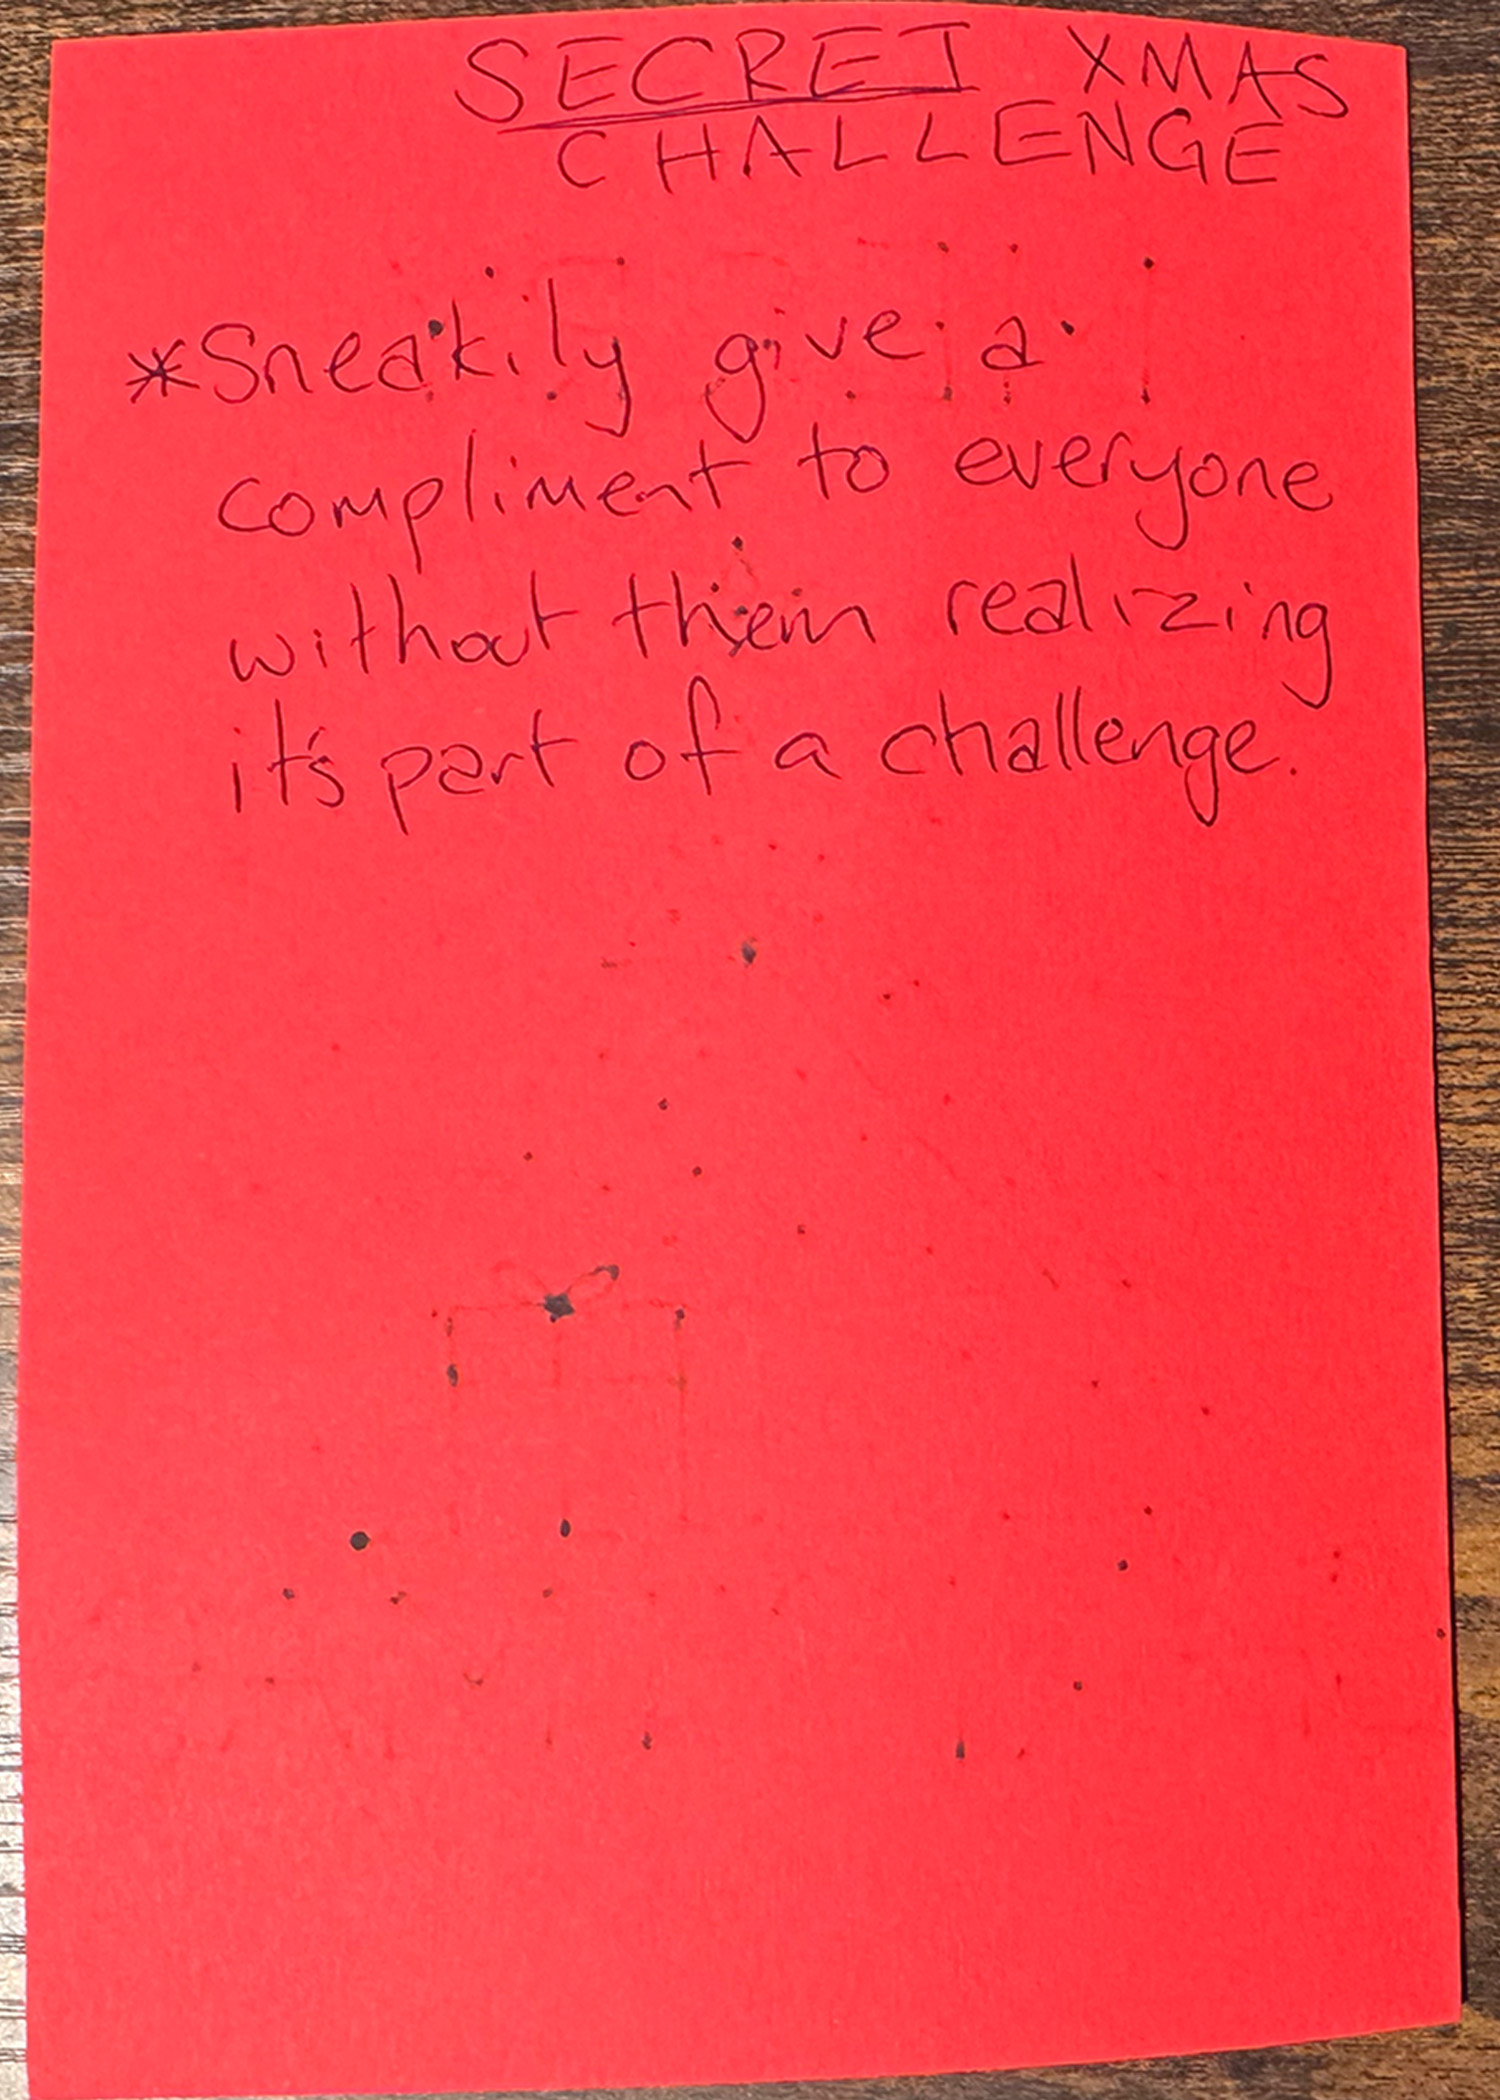 SECRET XMAS
CHALLENGE
*Sneakily give a
compliment to everyone
without them realizing
it's part of a challenge.